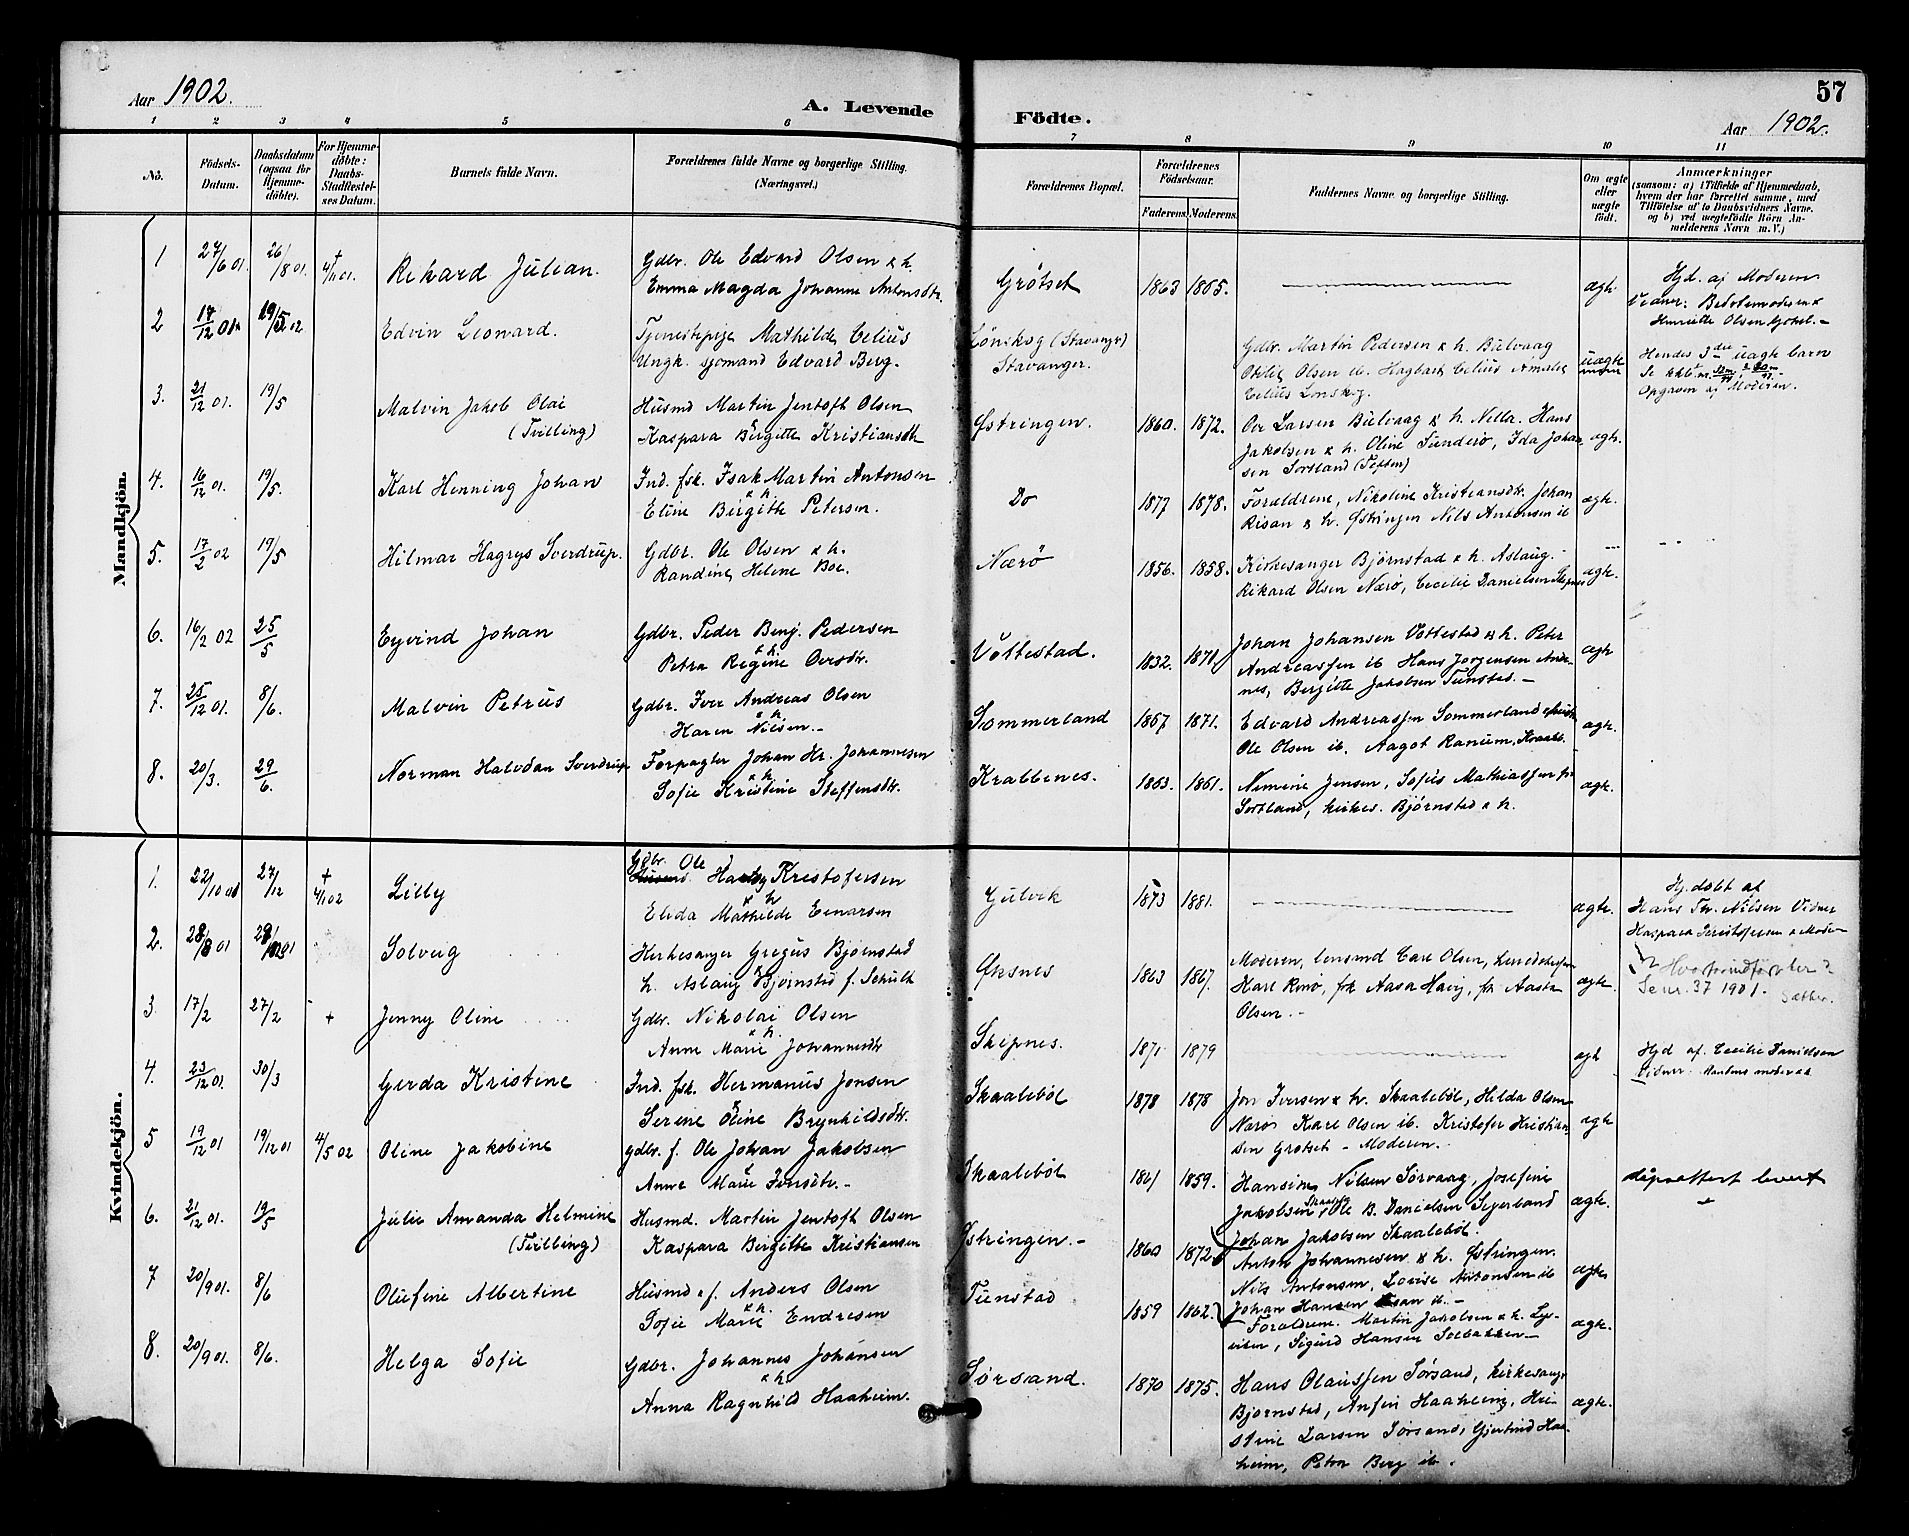 57
Aar 1902.
A. Levende
Födte.
Aar 1902.
1 2 3 4 5 6 7 8 9 10 11
No.
Födsels-
Datum.
Daabsdatum
(ogsaa for
Hjemme-
döbte).
For Hjemme-
döbte:
Daabs-
Stadfæstel-
ses Datum.
Barnets fulde Navn.
Forældrenes fulde Navne og borgerlige Stilling.
(Næringsvei.)
Forældrenes Bopæl.
Forældrenes
Födselsaar.
Faderens.
Moderens.
Faddernes Navne og borgerlige Stilling.
Om ægte
eller
uægte
født.
Anmærkninger
(saasom: a) i Tilfælde af Hjemmedaab,
hvem der har forrettet samme, med
Tilföielse af to Daabsvidners Navne.
og b) ved uægtefödte Börn An-
melderens Navn m. V.)
Mandkjön.
1 27/6 01 26/8 01. + 4/11 01. Rikard Julian. Gdbr. Ole Edvard Olsen & h.
Emma Magda Johanne Antonsdtr.
Grötset 1863 1865. ægte.
Hjd. af Moderen
Vidner: Bedstemoderen &
Henriette Olsen
2 17/12 01 19/5 02 Edvin Leonard. Tjenestepige Mathilde Celius
Ungk. sjømand Edvard Berg.
Lönskog (Stavanger)
Stavanger.
Gdbr. Martin Pedersen & h. Bulvaag
Otilie Olsen ib. Hagbart Celius Amalie
Celius Lonskog.
uægte
Hendes 3die uægte barn
Opgaven af Moderen.
3. 21/12 01. 19/5 Malvin Jakob Olai
(Tvilling)
Husmd Martin Jentoft Olsen
& Kaspara Birgitte Kristiansdtr
Østringen. 1860. 1872.
Ove Larsen Bulvaag & h. Nilla. Hans
Jakobsen & h. Oline Sunderö, Ida Johan
sen Sortland (Toften)
ægte.
4. 16/12 01. 19/5. Karl Henning Johan Ind. fsk. Isak Martin Antonsen
& h.
Eline Birgitte Petersen.
Do 1877 1878.
Forældrene, Nikoline Kristiansdtr. Johan
Risan & h. Østringen Nils Antonsen ib
ægte.
5. 17/2 02 19/5 Hilmar Hagrys Sverdrup. Gdbr. Ole Olsen & h.
Randine Helene Boe.
Nærö 1856. 1858.
Kirkesanger Bjørnstad & h. Aslaug.
Rikard Olsen Nærö, Cecilie Danielsen Skipnes
ægte.
6. 16/2 02 25/5 Eyvind Johan Gdbr. Peder Benj. Pedersen
& h.
Petra Regine Oversdtr.
Vottestad. 1832. 1871
Johan Johansen Vottestad & h. Peter
Andreassen ib Hans Jorgensen Ande-
nes, Bergitte Jakobsen Tunstad.
ægte
7. 25/12 01. 8/6. Malvin Petrus Gdbr. Iver Andreas Olsen
& h.
Karen Nilsen.
Sommerland 1867 1871.
Edvard Andreassen Sommerland
Ole Olsen ib. Aagot Ranum,
ægte.
8. 20/3. 29/6. Norman Halvdan Sverdrup Forpagter Johan Hr. Johannesen
& h.
Sofie Kristine Steffensdtr.
Krabbenes. 1863. 1861.
Nimine Jensen, Sofie Mathiassen
Sortland, kirkes. Bjørnstad & h.
ægte.
Kvindekjön.
1. 22/10 01 27/12 + 4/1 02 Lilly Gdbr. Ole
Husmd. Kristofersen
& h
Elida Mathilde Einarsen
Gulvik 1873 1881. ægte.
Hj. dobt af
Hans Th. Nilsen Vidner
Kaspara Kristofersen & Moder
2. 28/8 01 Solveig Kirkesanger Gregus Bjornstad
& h. Aslaug Bjørnstad f. Schult
Øksnes 1863 1867.
Moderen, lensmd Carl Olsen, herredskasser
Karl Rinö, frk Aasa Havig, frk Aasta
Olsen.
ægte.
Hvorfor indført her?
Se nr. 37 1901. Sæther.
3. 17/2 27/2 + Jenny Oline Gdbr. Nikolai Olsen
& h.
Anne Marie Johannesdtr
Skipnes. 1871 1879 ægt
Hjd af. Cecilie Danielsen
Vidner.
4. 23/12 01. 30/3 Gerda Kristine Ind. fsk. Hermanus Jonsen
&
Serine Oline Brynhildsdtr.
Skaalebol 1878 1878
Jon Iversen & h. Skaalebol, Hilda Olsen
Nærö Karl Olsen ib. Kristofer Kristian-
sen Grotset - Moderen.
ægte
5 19/12 01 19/12 01 4/5 02 Oline Jakobine gdbr. f. Ole Johan Jakobsen
&
Anne Marie Iversdtr.
Skaalebol 1861 1859.
Hansine Nilsen Sørvaag, Josefine
Jakobsen, Ole B. Danielsen Sejerland
Johan Jakobsen Skaalebol.
ægte.
dåpsattest levert
6. 21/12 01. 19/5 Julie Amanda Helmine
(Tvilling)
Husmd. Martin Jentoft Olsen
Kaspara Birgitte Kristiansen
Østringen. 1860 1872
Anton Johannesen & h. Østringen.
Nils Antonsen, Lovise Antonsen ib
Johan Hansen ib.
ægte
7 20/9 01. 8/6 Olufine Albertine Husmd & f. Anders Olsen
& h.
Sofie Marie Endresen
Tunstad 1859 1862.
Forældrene. Martin Jakobsen & h.
Sigurd Hansen Solbakken
ægte.
8. 20/9 01. 8/6. Helga Sofie Gdbr. Johannes Johansen
& h
Anna Ragnhild Haaheim.
Sørsand. 1870 1875.
Hans Olaussen Sørsand, kirkesang.
Bjornstad, Anfin Haaheim, Kri-
stine Larsen Sorsand, Gjertrud Haa-
heim, Petra Berg ib.
ægte.